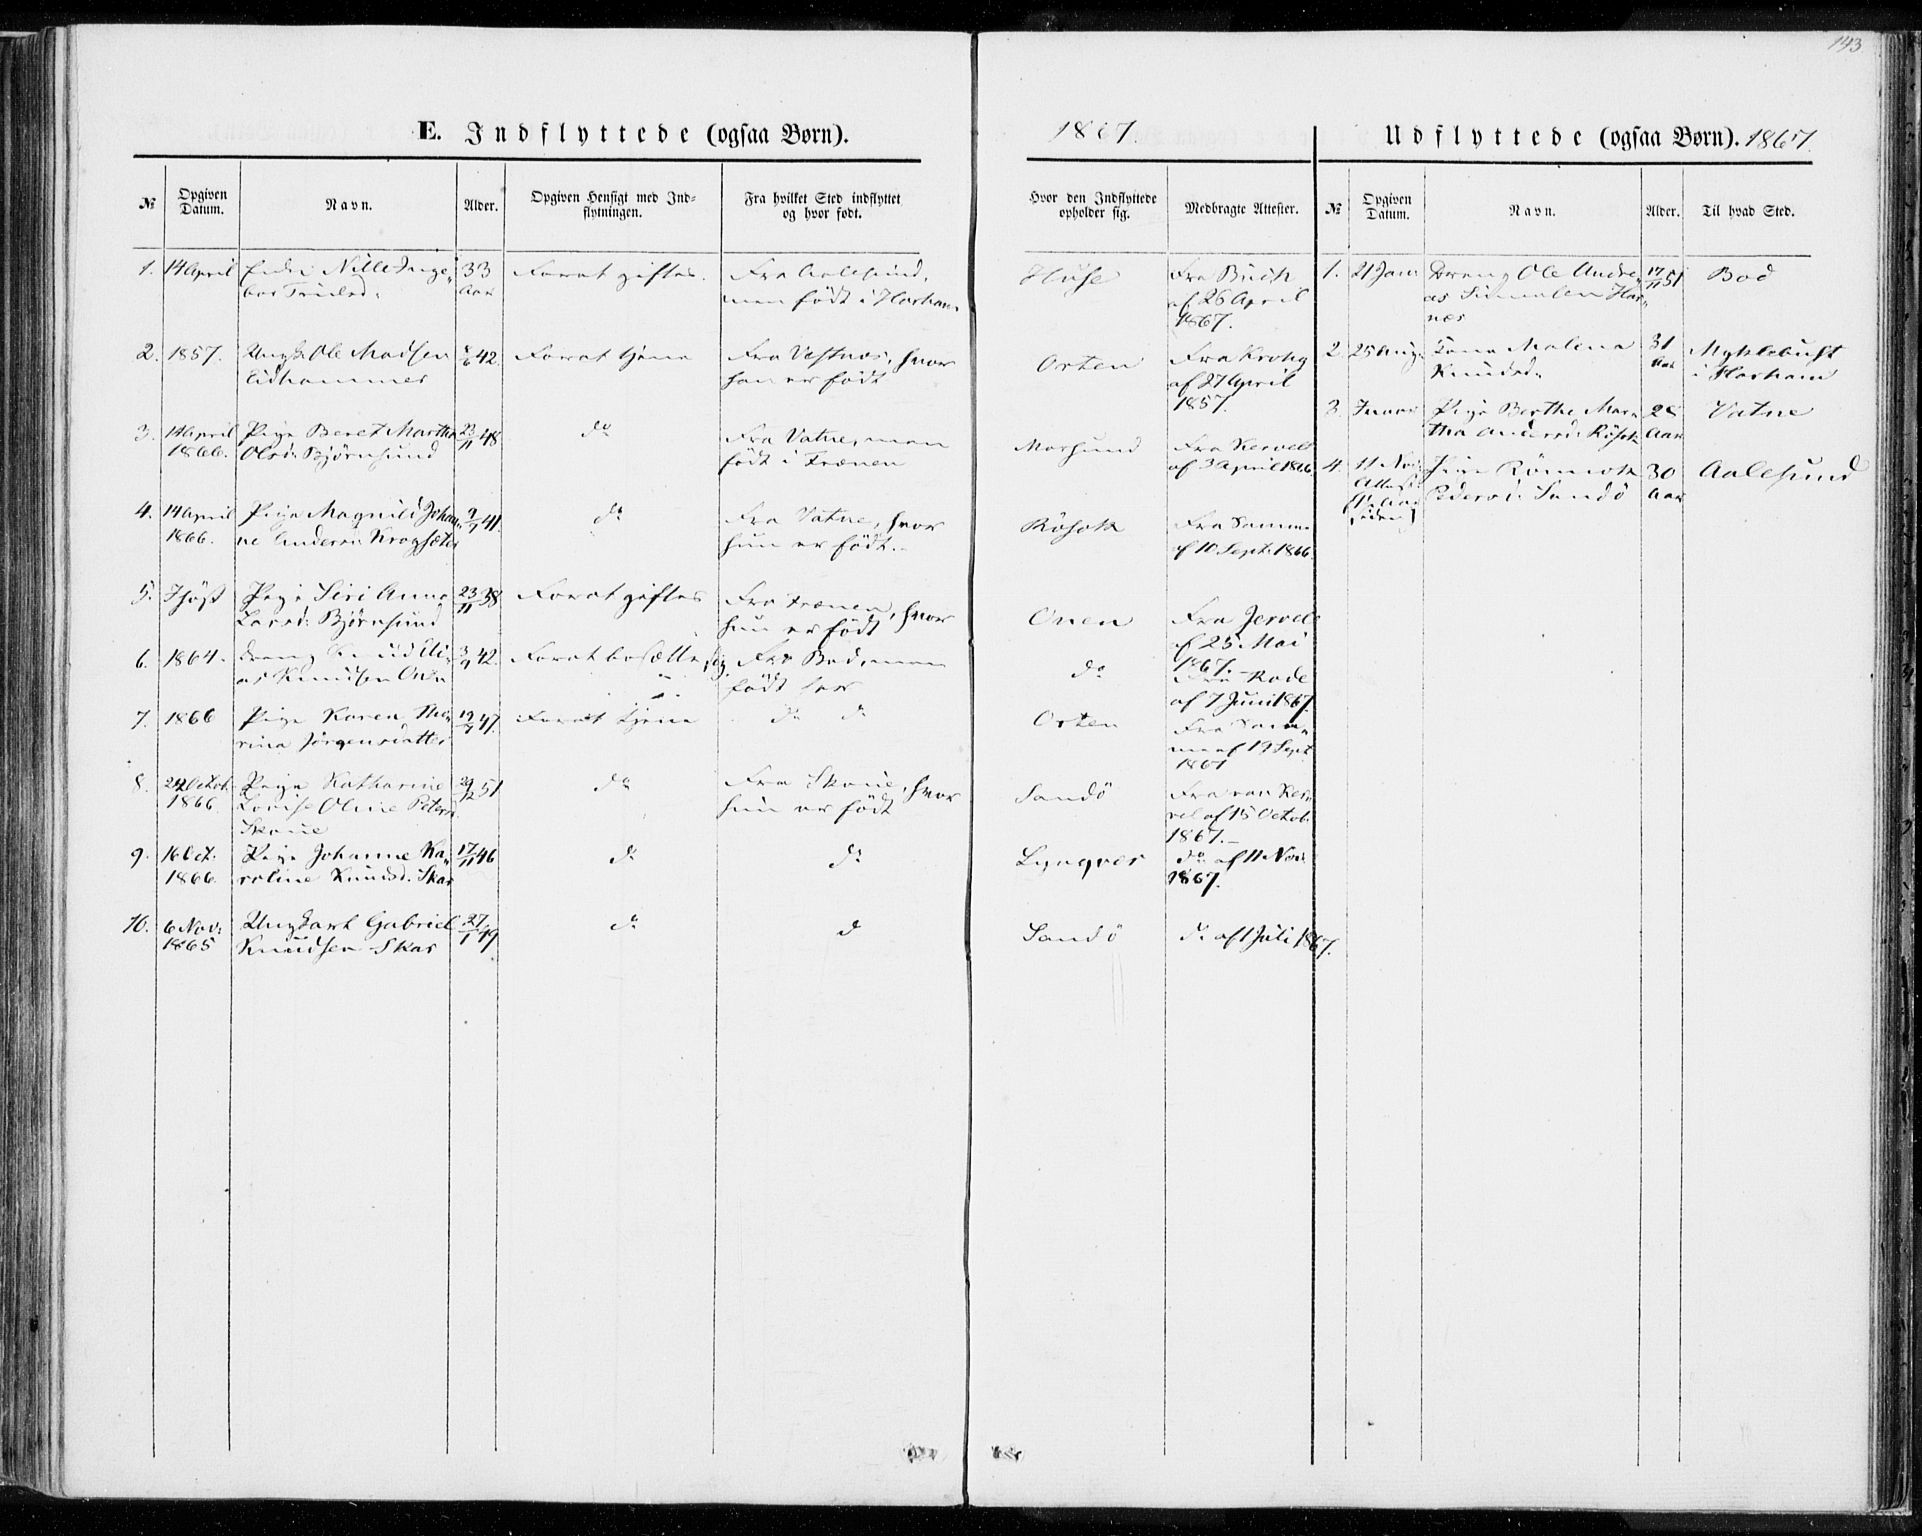 143
E. Indflyttede (ogsaa Børn).
1867.
Udflyttede (ogsaa Børn). 1867.
№ Opgiven Datum. Navn. Alder. Opgiven Hensigt med Ind-
flytningen. Fra hvilket Sted indflyttet
og hvor født. Hvor den Indflyttede
opholder sig. Medbragte Attester.
1. 14 April Nille Inge-
33
Aar
For at giftes.
Fra Aalesund,
men født i Harham.
Huse
Fra Buch
af 26 April
1867.
2. 1857. Ungk. Ole Madsen
Eidhammer
42.
For at tjene
Fra Vestnæs, hvor
han er født
Orten
Fra Krohg
af 27 April
1857.
3. 14 April
1866.
Pige Beret Martha
Olsd. Bjørnsund
23/11 48
do
Fra Vatne, men
født i Frænen
Morsund
af 3 April 1866
4. 14 April
1866.
Pige Magnild Johan-
ne Andersd. Krogsæter
41.
do
Fra Vatne, hvor
hun er født.
Røsok
Fra Samme
af 10 Sept. 1866.
5. Pige Siri Anna
Larsd. Bjørnsund
23/11 38
For at giftes
Fra Frænen, hvor
hun er født
Onen
Fra
af 25 Mai
1867.
6. 1864. Dreng Knud Eli-
as Knudsen Onen
42.
For at bosætte sig
Fra Bod, men
født her
do
Fra Rode
af 7 Juni 1867.
7. 1866 Pige Karen
Jørgensdatter
47.
For at tjene
do do
Orten
Fra Sam-
me af 19 Sept
1867
8. Octob.
1866.
Pige Katharine
Louise Oline Petersd.
Skoue
29/12 51
do
Fra Skoue, hvor
hun er født
Sandö
af 15 Octob.
1867.
9. 16 Oct.
1866.
Pige Johanne Ka-
roline Knudsd. Skar
17/11 46
do
do
Lyngvær
do af 11 Nov.
1867.
10. 6 Nov.
1865
Ungkarl Gabriel
Knudsen Skar
27/1 49.
do
do
Sandö
do af 1 Juli 1867.
№ Opgiven Datum. Navn. Alder. Til hvad Sted.
1. 21 Jan. Dreng Ole Andre-
as
17/11 51
Bod
2. 25 Aug. Malena
Knudsd.
31
Aar
Myklebust
i Harham
3. Pige Berthe Mar-
tha Andersd. Røsok
28
Aar
Vatne
4. 11 Nov.
Pige
Pedersd. Sandö
30
Aar
Aalesund